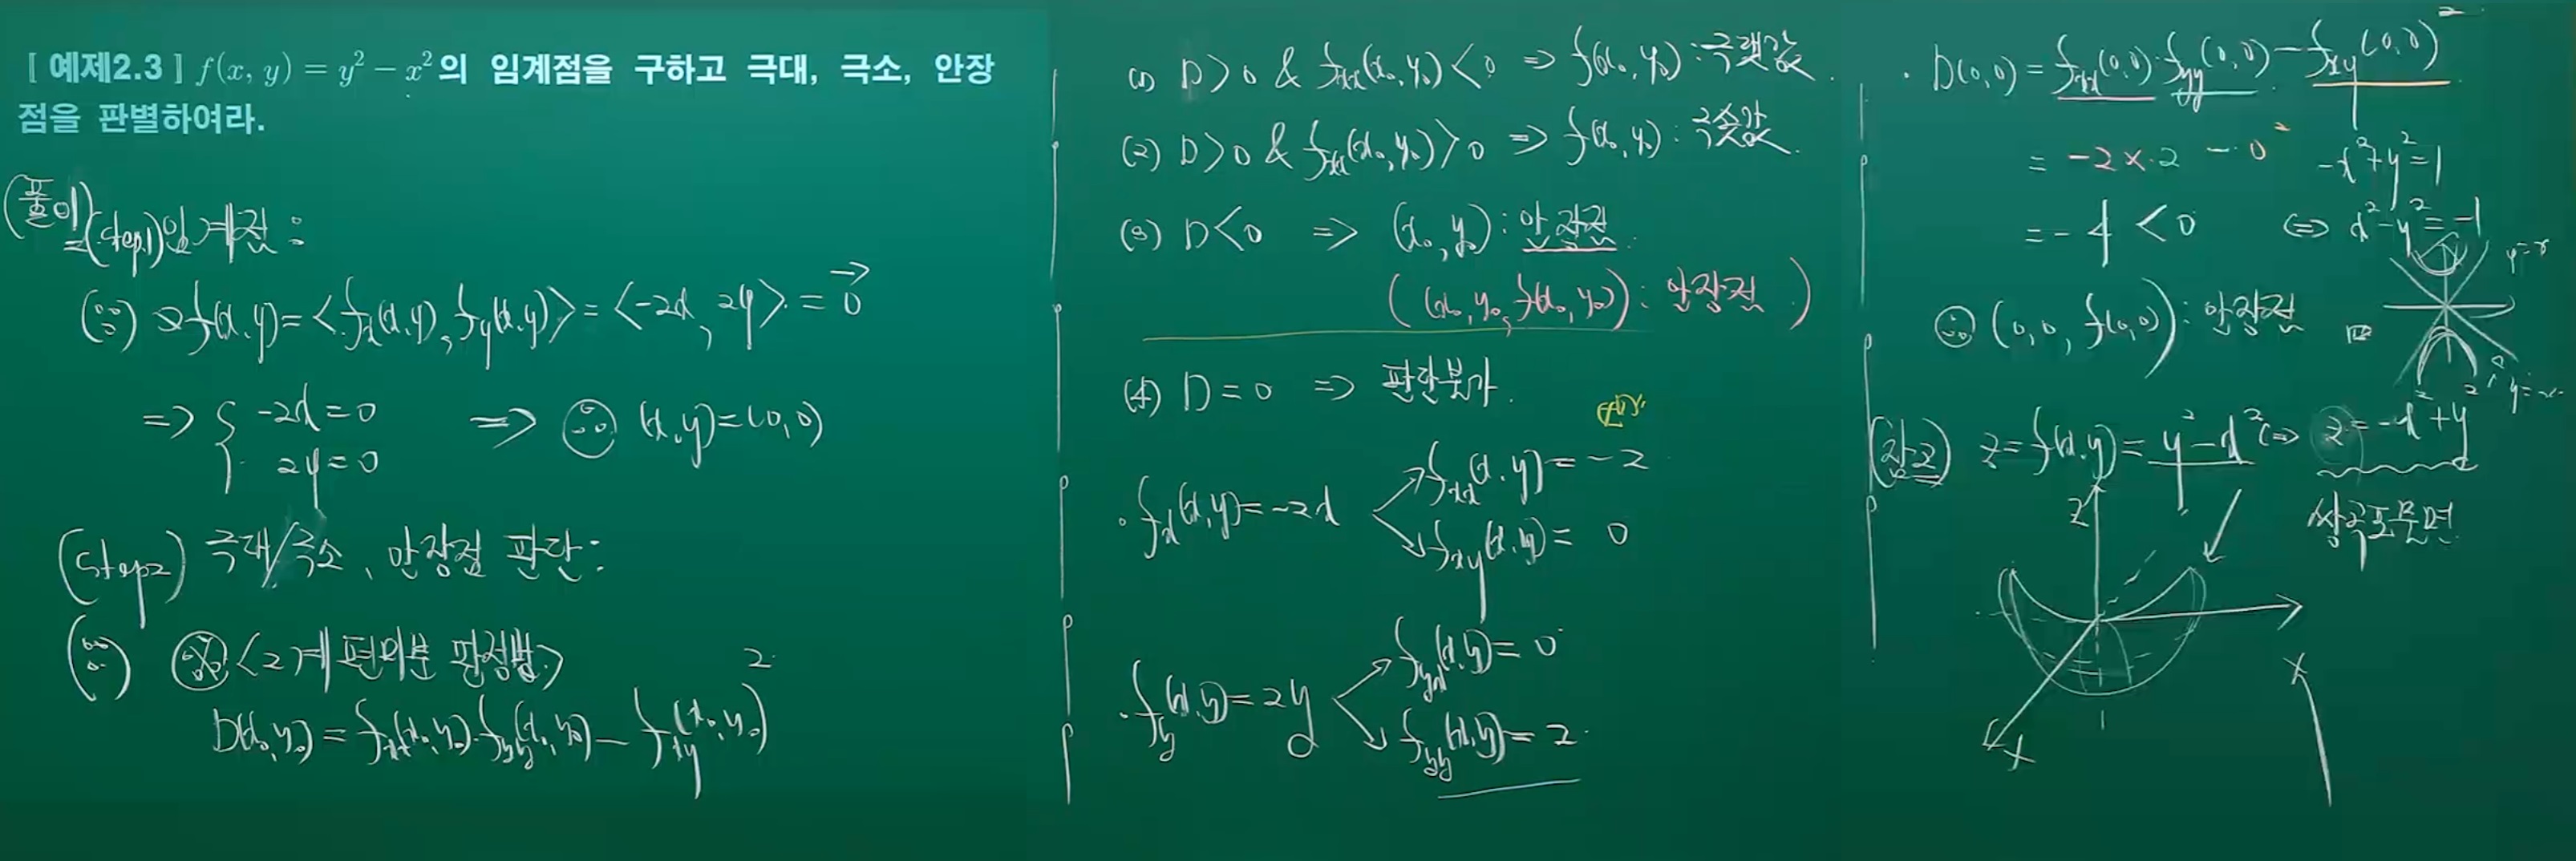 [ 예제2.3 ] f(x, y) = y² − x²의 임계점을 구하고 극대, 극소, 안장
점을 판별하여라.
(풀이)
(step1) 임계점 :
∇f(x,y) = <f_x(x,y), f_y(x,y)> = <-2x, 2y> = 0⃗
⇒ { -2x = 0
2y = 0
⇒ (x,y) = (0,0)
(step2) 극대/극소, 안장점 판단:
<2계 편미분 판정법>
D(x₀,y₀) = f_xx(x₀,y₀)·f_yy(x₀,y₀) − f_xy(x₀,y₀)²
(1) D>0 & f_xx(x₀,y₀)<0 ⇒ f(x₀,y₀) : 극댓값
(2) D>0 & f_xx(x₀,y₀)>0 ⇒ f(x₀,y₀) : 극솟값
(3) D<0 ⇒ (x₀,y₀) : 안장점
((x₀,y₀,f(x₀,y₀)) : 안장점)
(4) D=0 ⇒ 판단불가.
· f_x(x,y) = -2x
f_xx(x,y) = -2
f_xy(x,y) = 0
· f_y(x,y) = 2y
f_yx(x,y) = 0
f_yy(x,y) = 2
· D(0,0) = f_xx(0,0)·f_yy(0,0) − f_xy(0,0)²
= -2×2 - 0²
= -4 < 0
-x²+y²=1
⇔ x²-y²=-1
y=x
y=-x
(0,0,f(0,0)) : 안장점
(참고) z=f(x,y)=y²-x² ⇔ z=-x²+y²
쌍곡포물면
z
x